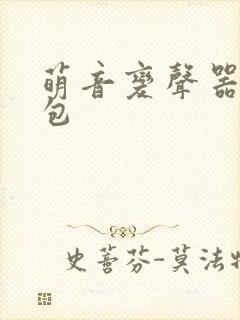 萌音變聲器
包
史蒼芬-莫法特